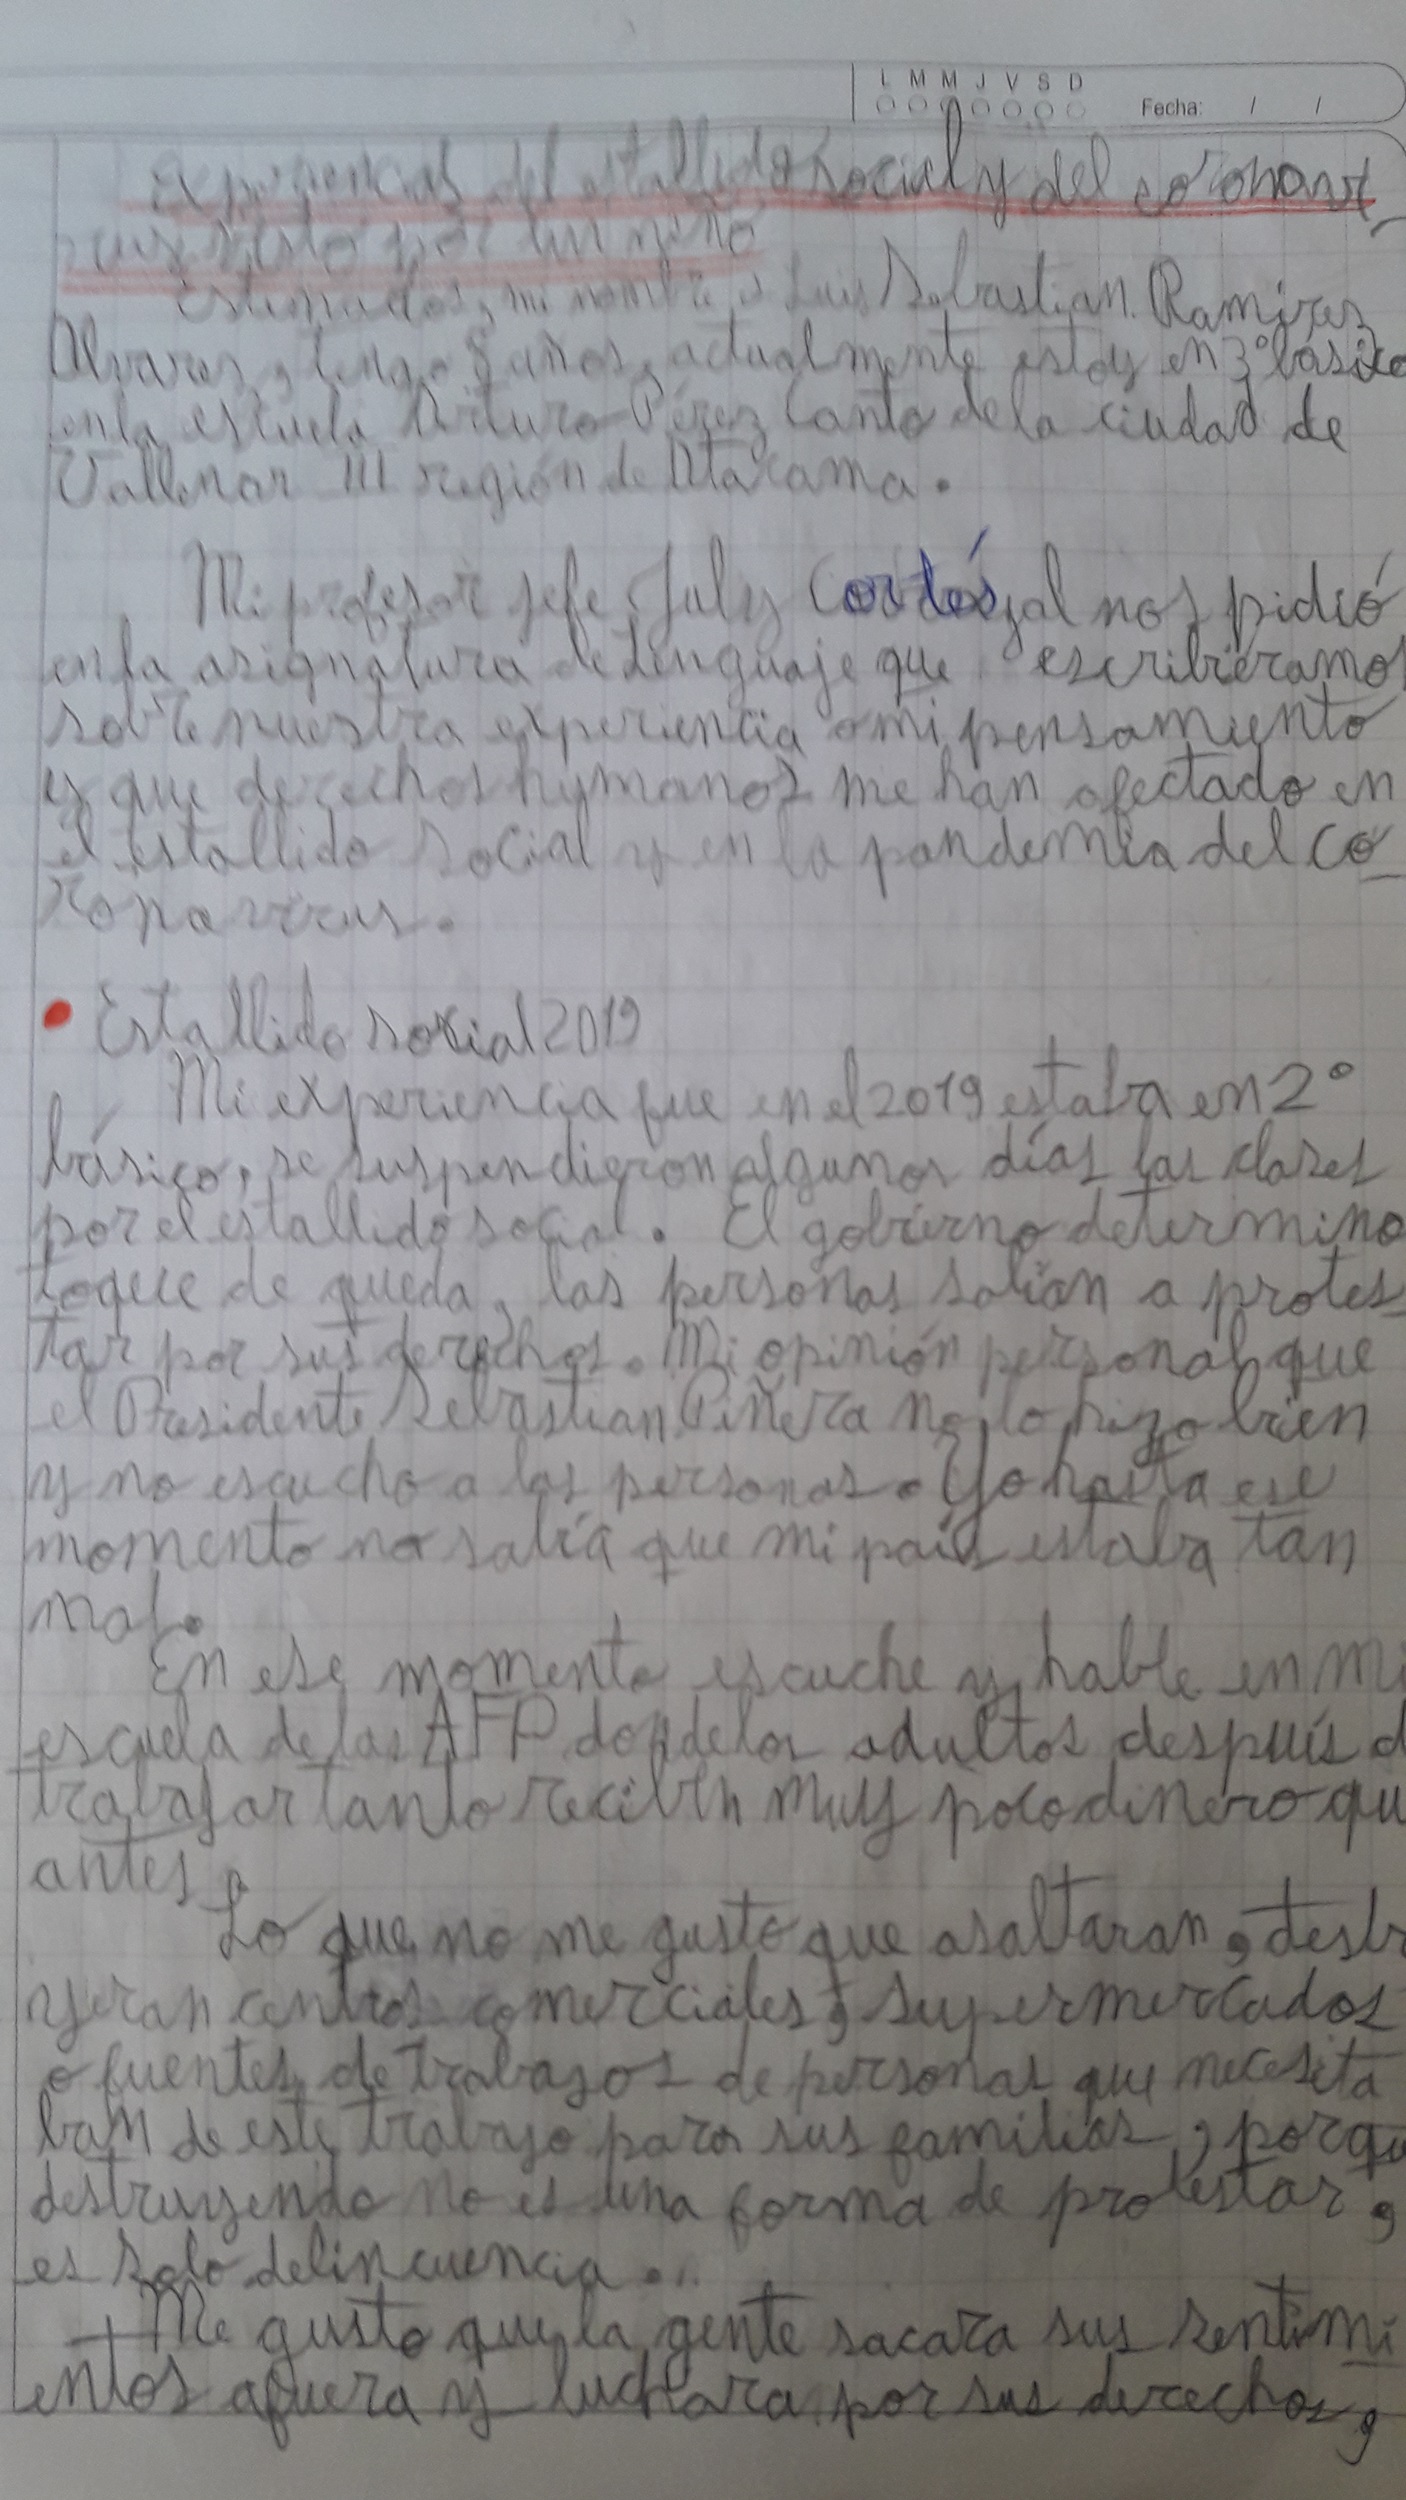 L M M J V S D
Fecha: / /
Experiencias del estallido social y del coronavi_
rus visto por un niño
Estimados, mi nombre es Luis Sebastian Ramirez
Alvarez, tengo 8 años, actualmente estoy en 3° básico
en la escuela Arturo Pérez Canto de la ciudad de
Vallenar III región de Atacama.
Mi profesor jefe July Cortés, al nos pidió
en la asignatura de Lenguaje que escribiéramos
sobre nuestra experiencia o mi pensamiento
y que derechos humanos me han afectado en
el estallido social y en la pandemia del co_
ronavirus.
• Estallido social 2019
Mi experiencia fue en el 2019 estaba en 2°
básico, se suspendieron algunos días las clases
por el estallido social. El gobierno determino
toque de queda, las personas salían a protes_
tar por sus derechos. Mi opinión personal, que
el Presidente Sebastian Piñera no lo hizo bien
y no escucho a las personas. Yo hasta ese
momento no sabía que mi país estaba tan
mal.
En ese momento escuche y hable en mi
escuela de las AFP donde los adultos después d
trabajar tanto reciben muy poco dinero qu
antes.
Lo que no me gusto que asaltaran, destr
yeran centros comerciales, supermercados
o fuentes de trabajos de personas que necesita
ban de este trabajo para sus familias, porqu
destruyendo no es una forma de protestar,
es solo delincuencia...
Me gusto que la gente sacara sus sentimi
entos afuera y luchara por sus derechos,